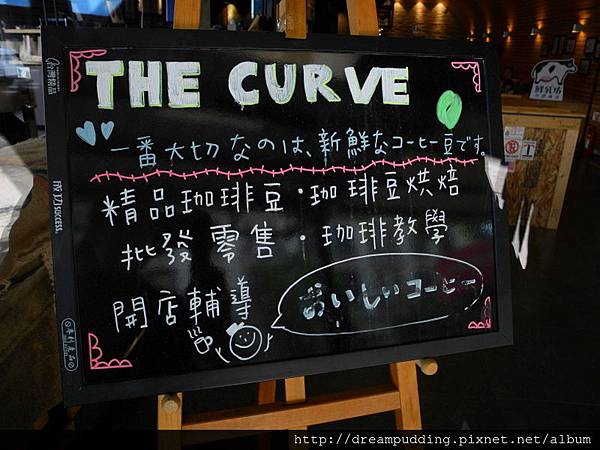 THE CURVE
一番大切なのは、新鮮なコーヒー豆です。
精品珈琲豆・珈琲豆烘焙
批發零售・珈琲教學
開店輔導
おいしいコーヒー
成功SUCCESS.
鮮乳坊
http://dreampudding.pixnet.net/album